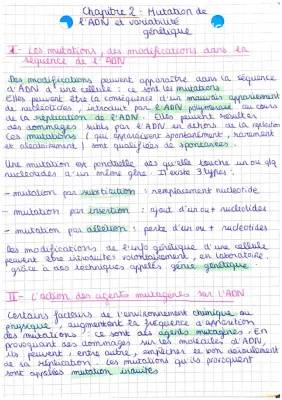 Chapitre 2 : Mutation de
l'ADN et variabilité
génétique
I - Les mutations, des modifications dans la
séquence de l'ADN
Des modifications peuvent apparaître dans la séquence
d'ADN d'une cellule : ce sont les mutations
Elles peuvent être la conséquence d'un mauvais appariement
de nucléotides, introduit par l'ADN polymérase au cours
de la réplication de l'ADN. Elles peuvent résulter
des dommages subis par l'ADN en dehors de la réplication
Ces mutations (qui apparaissent spontanément, rarement
et aléatoirement) sont qualifiées de spontanées.
Une mutation est ponctuelle dès qu'elle touche un ou qlq
nucléotides d'un même gène. Il existe 3 types :
- mutation par substitution : remplacement nucléotide
- mutation par insertion : ajout d'un ou + nucléotides
- mutation par délétion : perte d'un ou + nucléotides
Des modifications de l'info génétique d'une cellule
peuvent être introduites volontairement, en laboratoire
grâce à nos techniques appelés génie génétique.
II - L'action des agents mutagènes sur l'ADN
Certains facteurs de l'environnement chimique ou
physique, augmentent la fréquence d'apparition
des mutations : ce sont des agents mutagènes. En
provoquant des dommages sur les molécules d'ADN,
ils peuvent, entre autre, empêcher le bon déroulement
de sa réplication. Les mutations qu'ils provoquent
sont appelées mutation induites